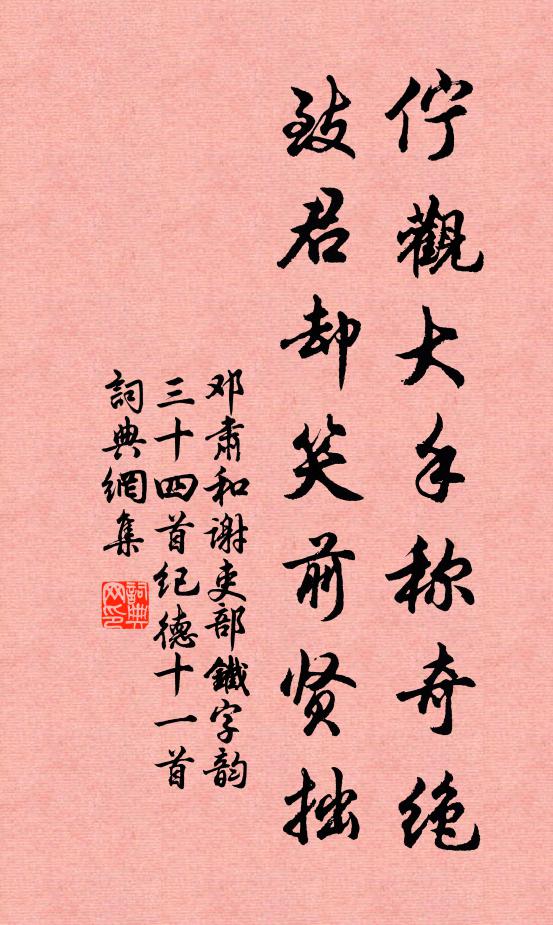 佇觀大手称奇绝
致君却笑前贤拙
邓肃和谢吏部鐵字韵
三十四首纪德十一首
詞典網集
詞典网印